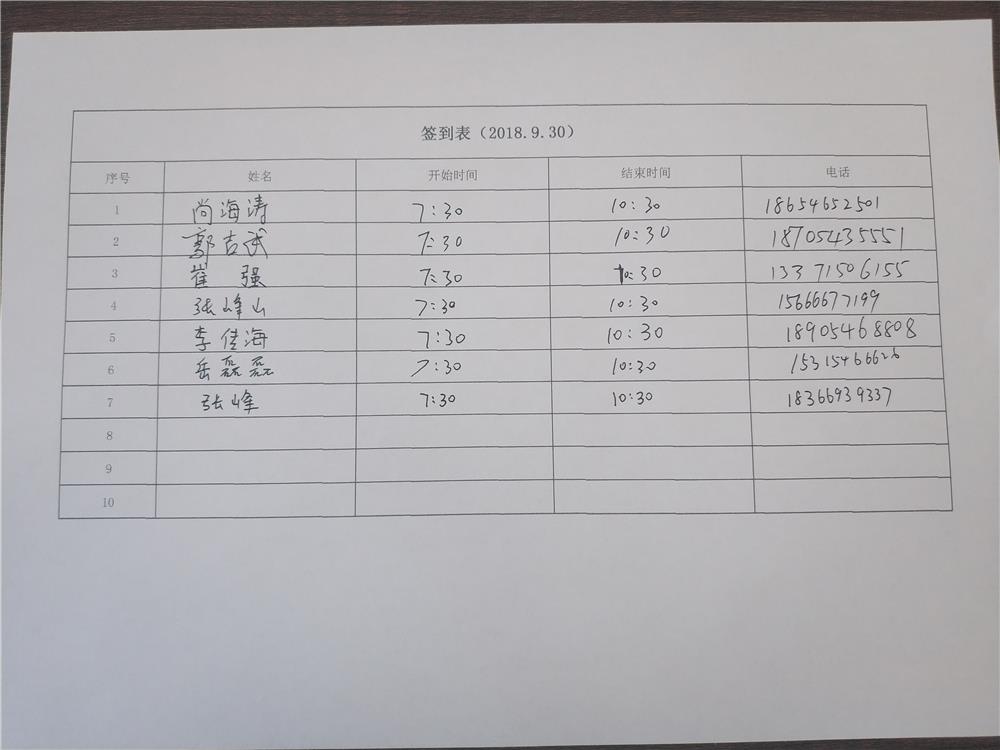 签到表（2018.9.30）
序号 姓名 开始时间 结束时间 电话
1 尚海涛 7:30 10:30 18654652501
2 郭吉武 7:30 10:30 18705435551
3 崔强 7:30 10:30 13371506155
4 张峰山 7:30 10:30 15666677199
5 李佳海 7:30 10:30 18905468808
6 岳磊磊 7:30 10:30 15315466626
7 张峰 7:30 10:30 18366939337
8
9
10